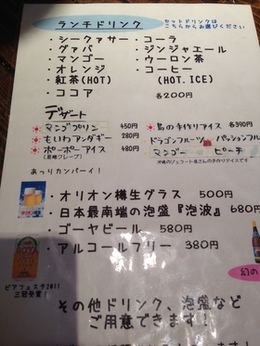 ランチドリンク
セットドリンクは
こちらからお選びください
・シークァサー・コーラ
・グァバ ・ジンジャエール
・マンゴー ・ウーロン茶
・オレンジ ・コーヒー
・紅茶(HOT) (HOT.ICE)
・ココア 各200円
デザート
マンゴプリン 450円
もいわアンダギー 280円
ポーポーアイス 480円
(黒糖クレープ)
島の手作りアイス 各390円
ドラゴンフルーツ パッションフルーツ
マンゴー ピーチ
あっりカンパーイ!
・オリオン樽生グラス 500円
・日本最南端の泡盛『泡波』 680円
・ゴーヤビール 580円
・アルコールフリー 380円
ビアフェスタ2011
三冠受賞!
幻の
その他ドリンク、泡盛など
ご用意できます!